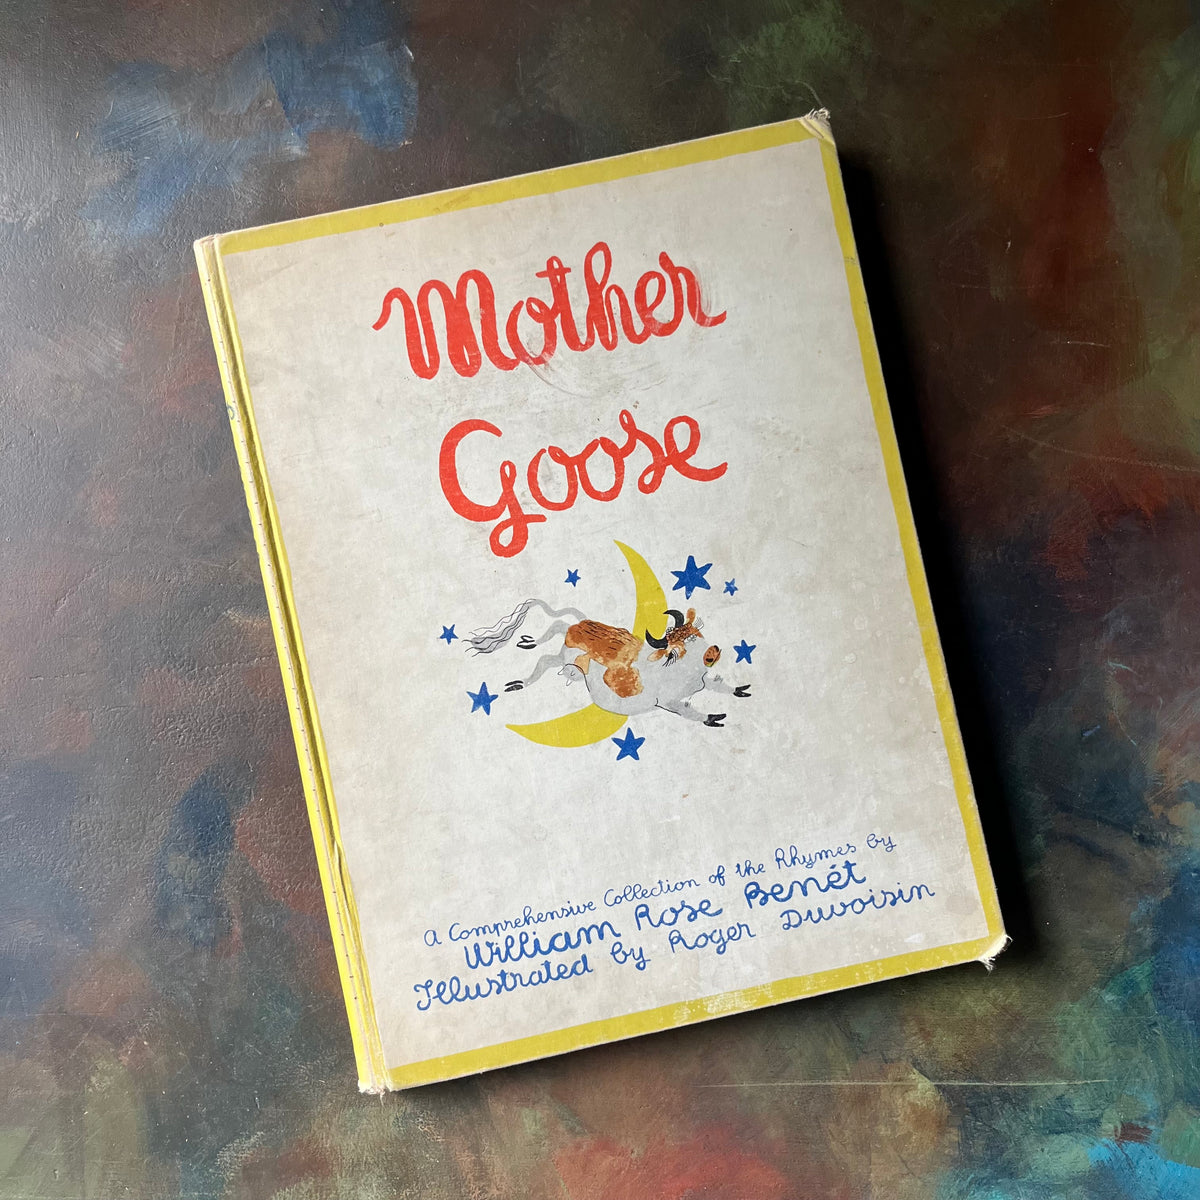 Mother
Goose
A Comprehensive Collection of the Rhymes by
William Rose Benét
Illustrated by Roger Duvoisin